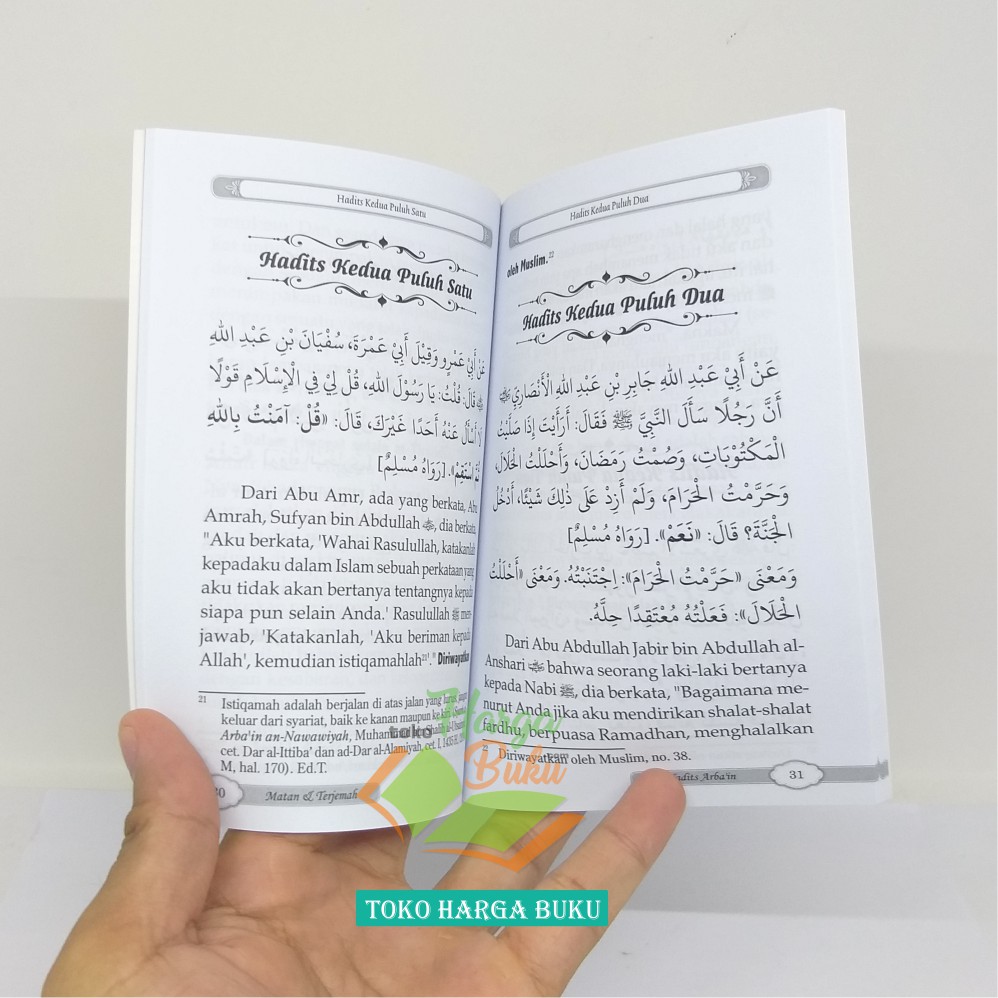 Hadits Kedua Puluh Satu
Hadits Kedua Puluh Satu
عَنْ أَبِيْ عَمْرٍو وَقِيْلَ أَبِيْ عَمْرَةَ، سُفْيَانَ بْنِ عَبْدِ اللهِ
ﷺ قَالَ: قُلْتُ: يَا رَسُوْلَ اللهِ، قُلْ لِيْ فِي الْإِسْلَامِ قَوْلًا
لَا أَسْأَلُ عَنْهُ أَحَدًا غَيْرَكَ، قَالَ: «قُلْ: آمَنْتُ بِاللهِ
ثُمَّ اسْتَقِمْ». [رَوَاهُ مُسْلِمٌ]
Dari Abu Amr, ada yang berkata, Abu
Amrah, Sufyan bin Abdullah, dia berkata,
"Aku berkata, 'Wahai Rasulullah, katakanlah
kepadaku dalam Islam sebuah perkataan yang
aku tidak akan bertanya tentangnya kepada
siapa pun selain Anda.' Rasulullah ﷺ men-
jawab, 'Katakanlah, 'Aku beriman kepada
Allah', kemudian istiqamahlah²¹'." Diriwayatkan
21 Istiqamah adalah berjalan di atas jalan yang lurus,
keluar dari syariat, baik ke kanan maupun ke kiri.
Arba'in an-Nawawiyah, Muhammad
cet. Dar al-Ittiba' dan ad-Dar al-Alamiyah, cet. I, 1435 H
M, hal. 170). Ed.T.
Matan & Terjemah
Hadits Kedua Puluh Dua
oleh Muslim.²²
Hadits Kedua Puluh Dua
عَنْ أَبِيْ عَبْدِ اللهِ جَابِرِ بْنِ عَبْدِ اللهِ الْأَنْصَارِيِّ
أَنَّ رَجُلًا سَأَلَ النَّبِيَّ ﷺ فَقَالَ: أَرَأَيْتَ إِذَا صَلَّيْتُ
الْمَكْتُوْبَاتِ، وَصُمْتُ رَمَضَانَ، وَأَحْلَلْتُ الْحَلَالَ،
وَحَرَّمْتُ الْحَرَامَ، وَلَمْ أَزِدْ عَلَى ذٰلِكَ شَيْئًا، أَدْخُلُ
الْجَنَّةَ؟ قَالَ: «نَعَمْ». [رَوَاهُ مُسْلِمٌ]
وَمَعْنَى «حَرَّمْتُ الْحَرَامَ»: اِجْتَنَبْتُهُ. وَمَعْنَى «أَحْلَلْتُ
الْحَلَالَ»: فَعَلْتُهُ مُعْتَقِدًا حِلَّهُ.
Dari Abu Abdullah Jabir bin Abdullah al-
Anshari bahwa seorang laki-laki bertanya
kepada Nabi ﷺ, dia berkata, "Bagaimana me-
nurut Anda jika aku mendirikan shalat-shalat
fardhu, berpuasa Ramadhan, menghalalkan
22 Diriwayatkan oleh Muslim, no. 38.
Hadits Arba'in 31
toko Harga
Buku
.com
TOKO HARGA BUKU